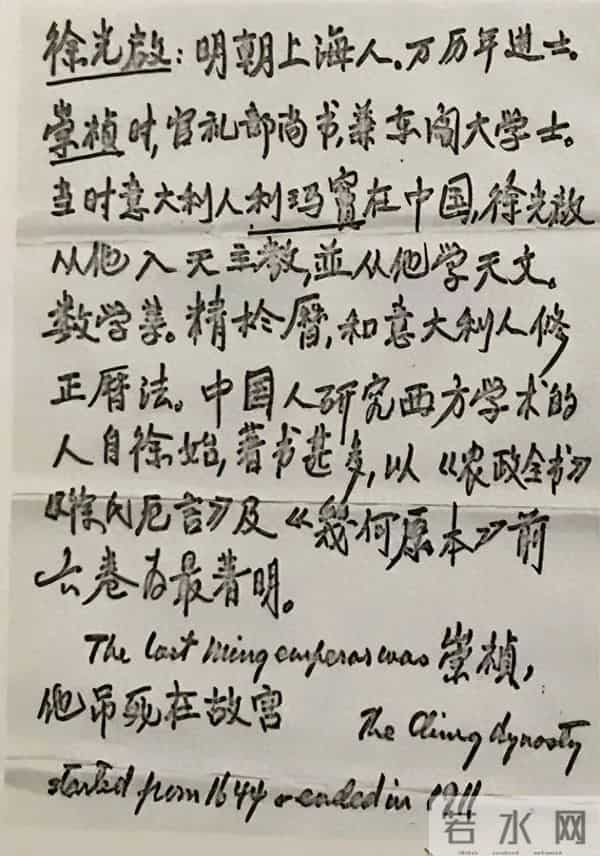 徐光啟：明朝上海人。万历年进士。
崇禎时，官礼部尚书，兼东阁大学士。
当时意大利人利玛竇在中国，徐光啟
从他入天主教，並从他学天文。
数学等。精於曆，和意大利人修
正曆法。中国人研究西方学术的
人自徐始，著书甚多，以《农政全书》
《徐氏卮言》及《幾何原本》前
六卷为最著明。
The last Ming emperor was 崇禎，
他吊死在故宫
The Ching dynasty
started from 1644 & ended in 1911
若水网